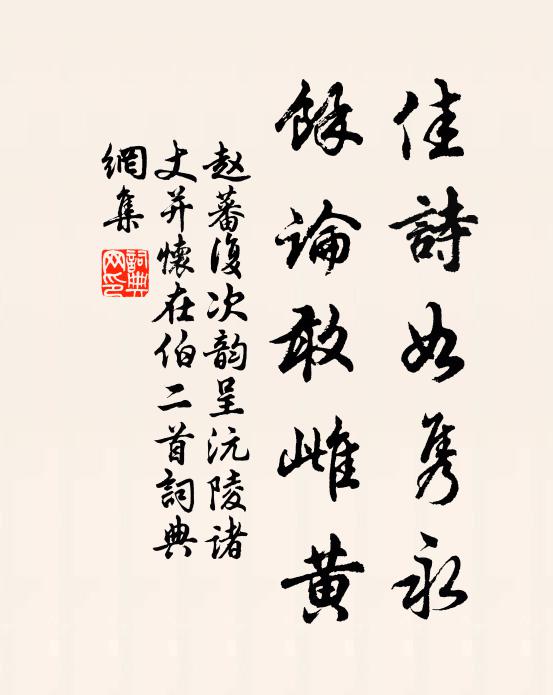 佳詩如隽永
餘論敢雌黄
赵蕃復次韵呈沅陵諸
丈并懷在伯二首詞典
網集
詞典网印